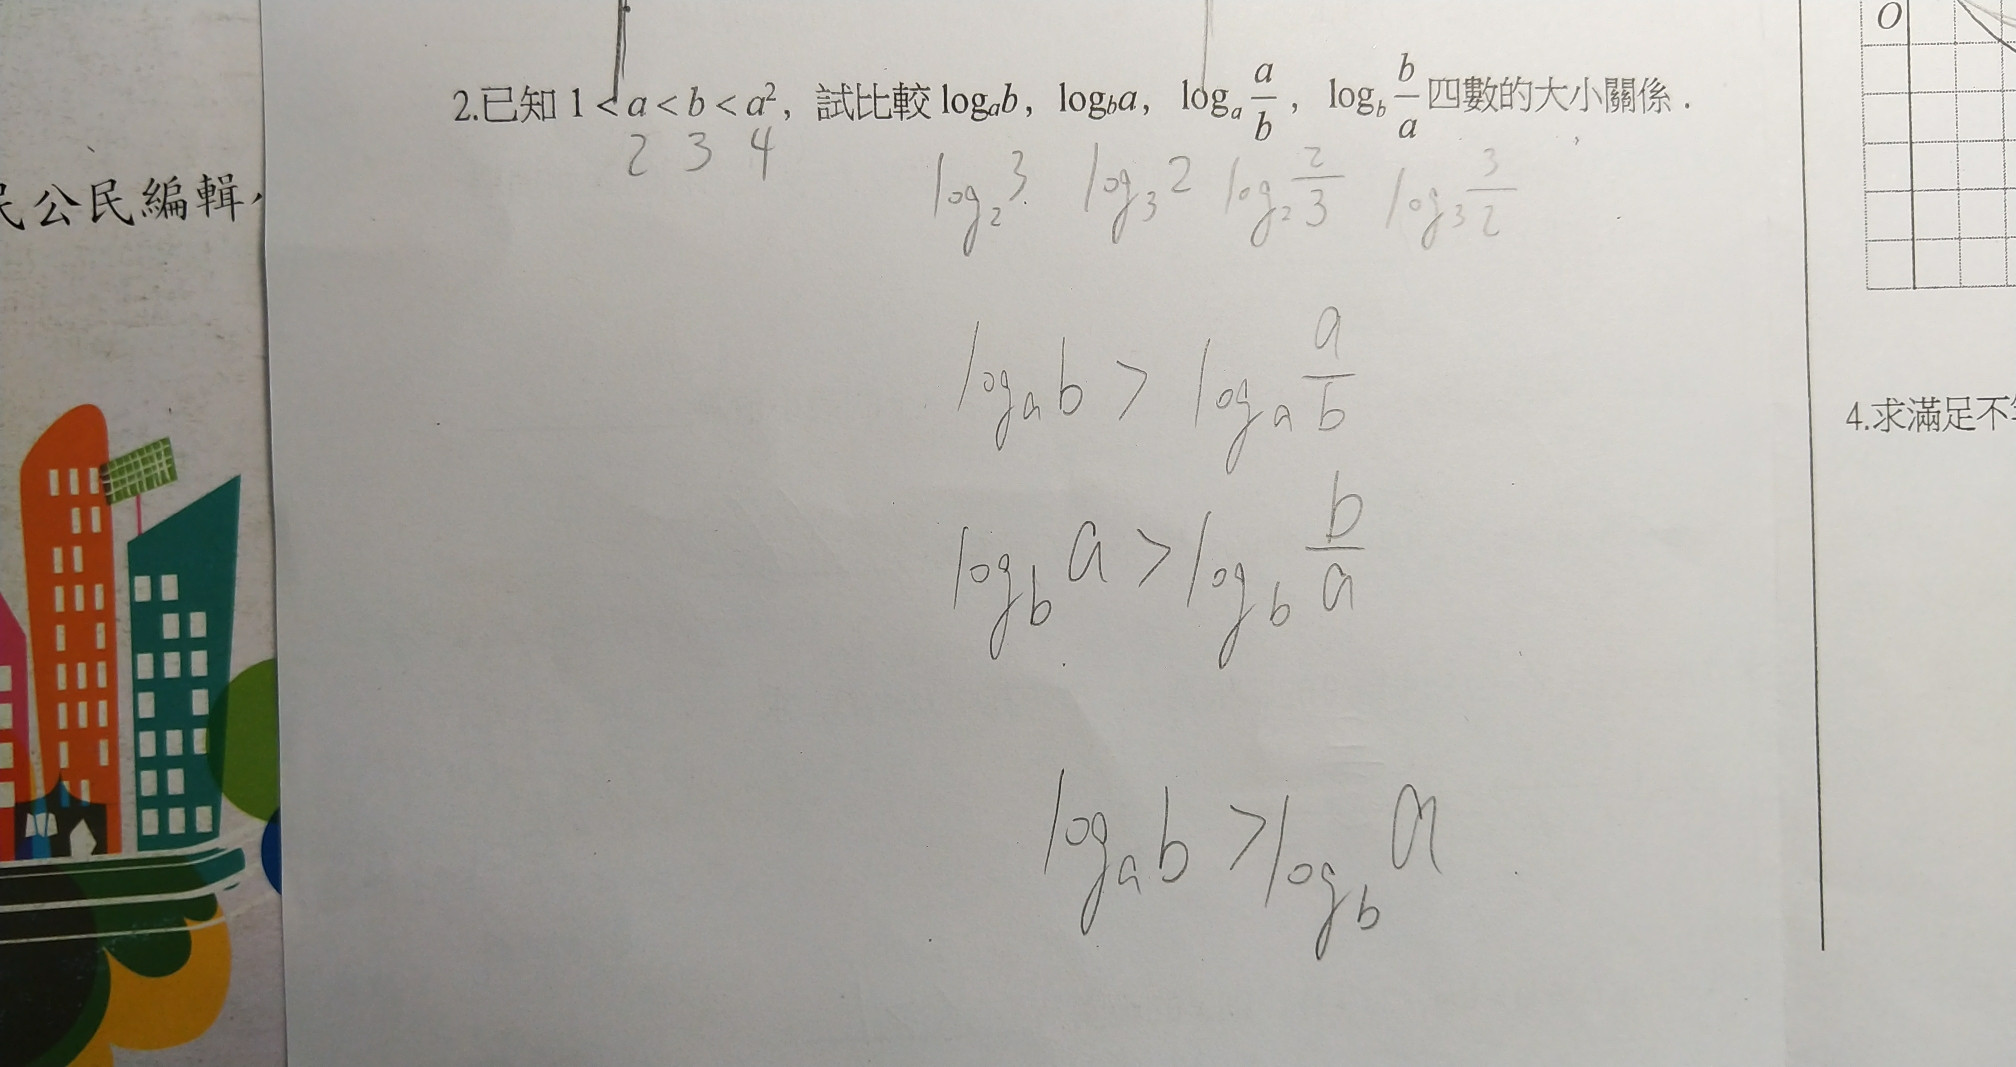 O
2.已知 1 < a < b < a², 試比較 logₐb, log_b a, logₐ a/b, log_b b/a 四數的大小關係.
2 3 4
log₂3 log₃2 log₂ 2/3 log₃ 3/2
民公民編輯,
logₐb > logₐ a/b
4.求滿足不
log_b a > log_b b/a
logₐb > log_b a